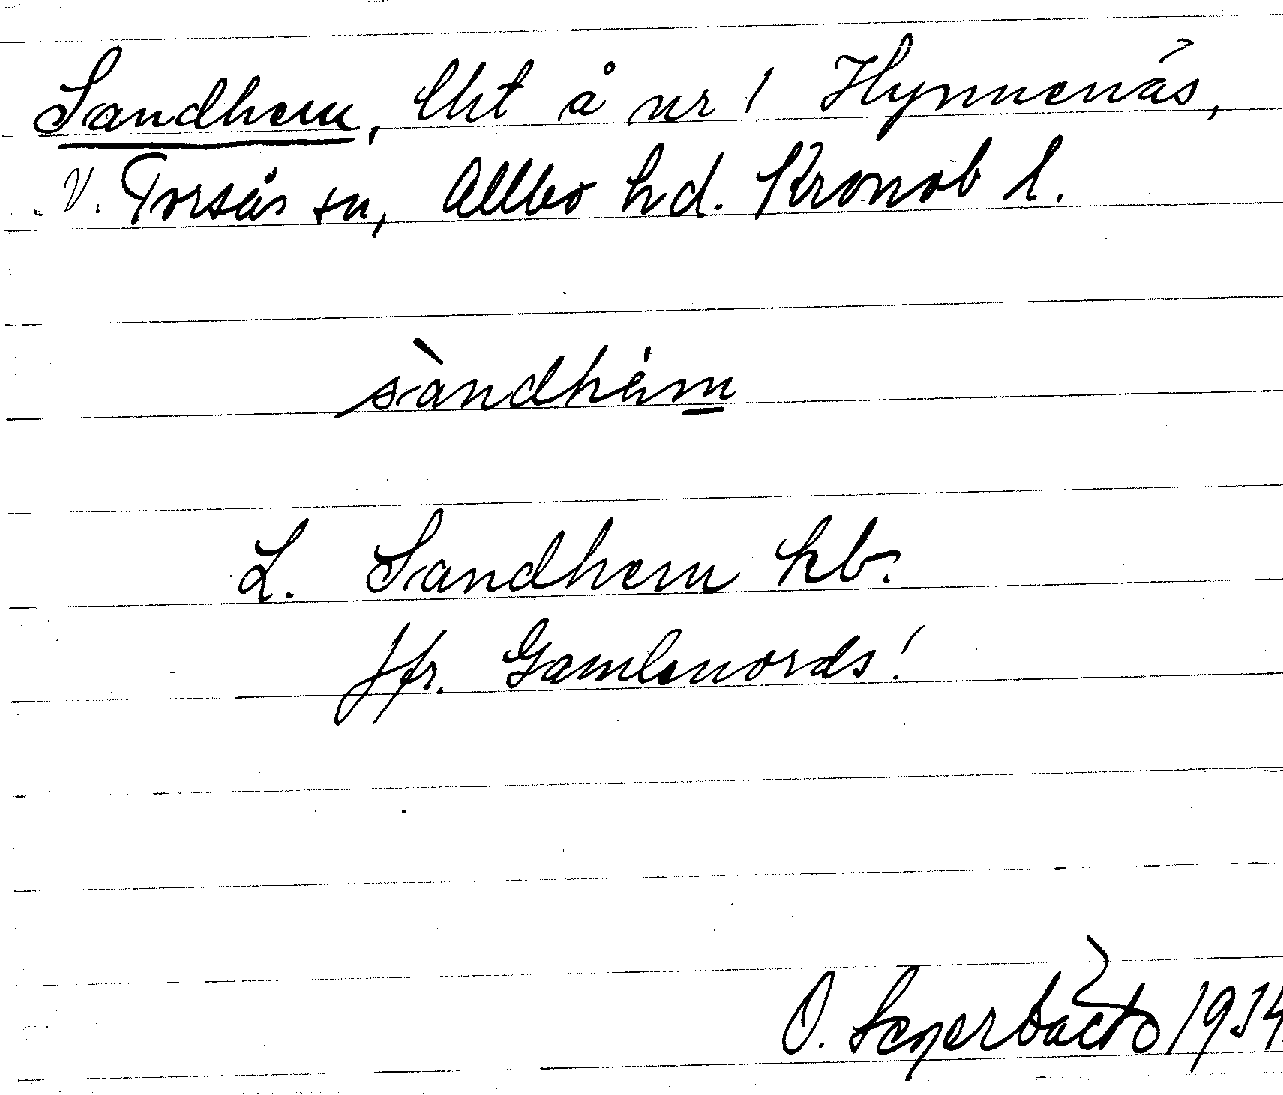 Sandhem, lht å nr 1 Hynnenäs,
V. Torsås sn, Allbo hd. Kronob l.
sàndhèm
L. Sandhem hb.
Jfr. Gamlenords!
O. Segerbäck 1934